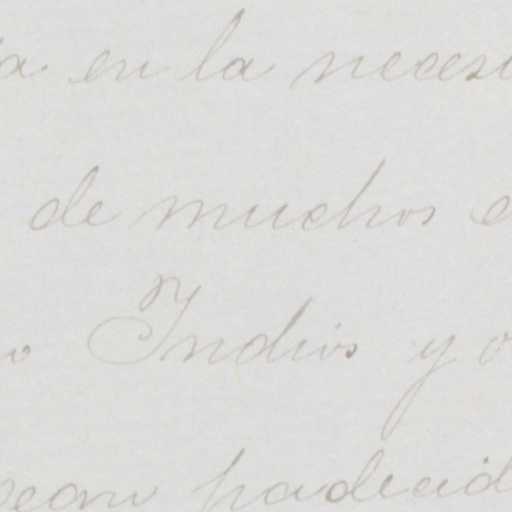 a en la neces
de muchos
Indios y o
sean padecid